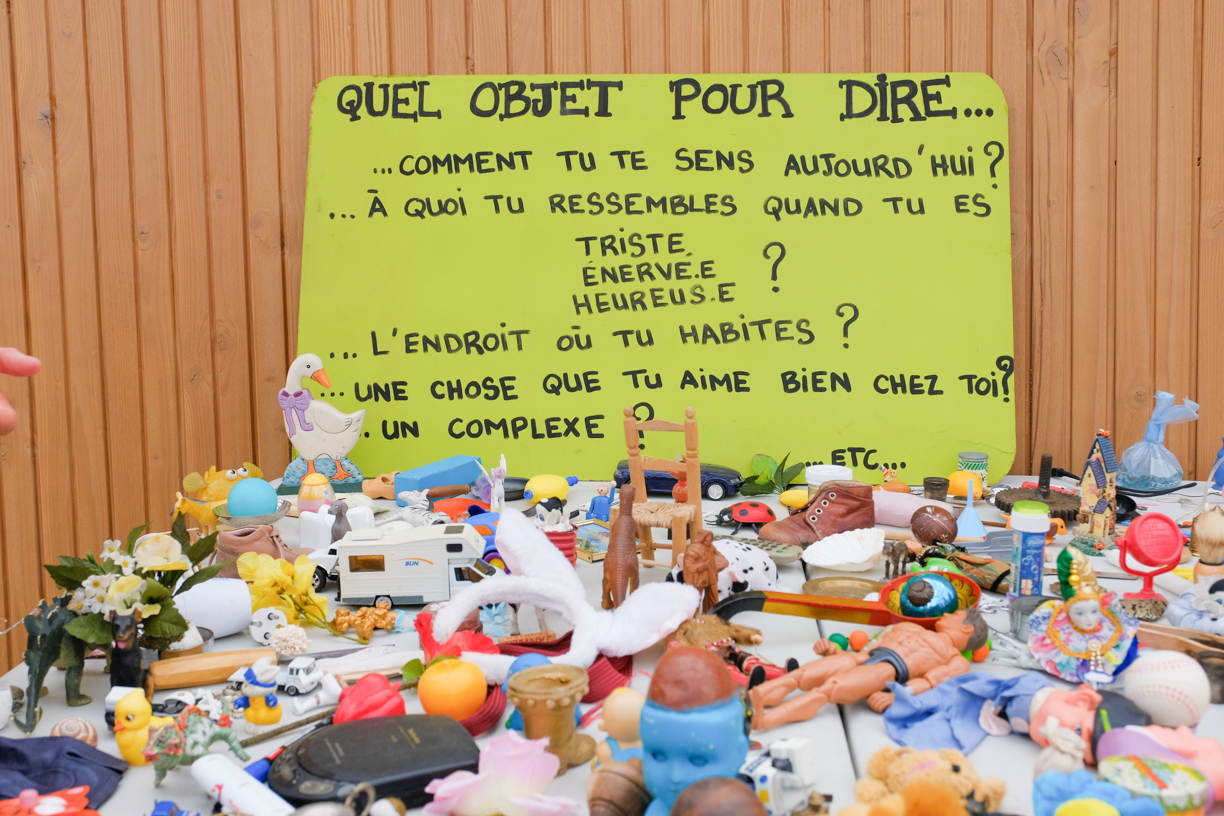 QUEL OBJET POUR DIRE...
...COMMENT TU TE SENS AUJOURD'HUI?
...À QUOI TU RESSEMBLES QUAND TU ES
TRISTE
ÉNERVÉ.E ?
HEUREUS.E
...L'ENDROIT OÙ TU HABITES ?
...UNE CHOSE QUE TU AIME BIEN CHEZ TOI?
.UN COMPLEXE ?
...ETC...
SUN